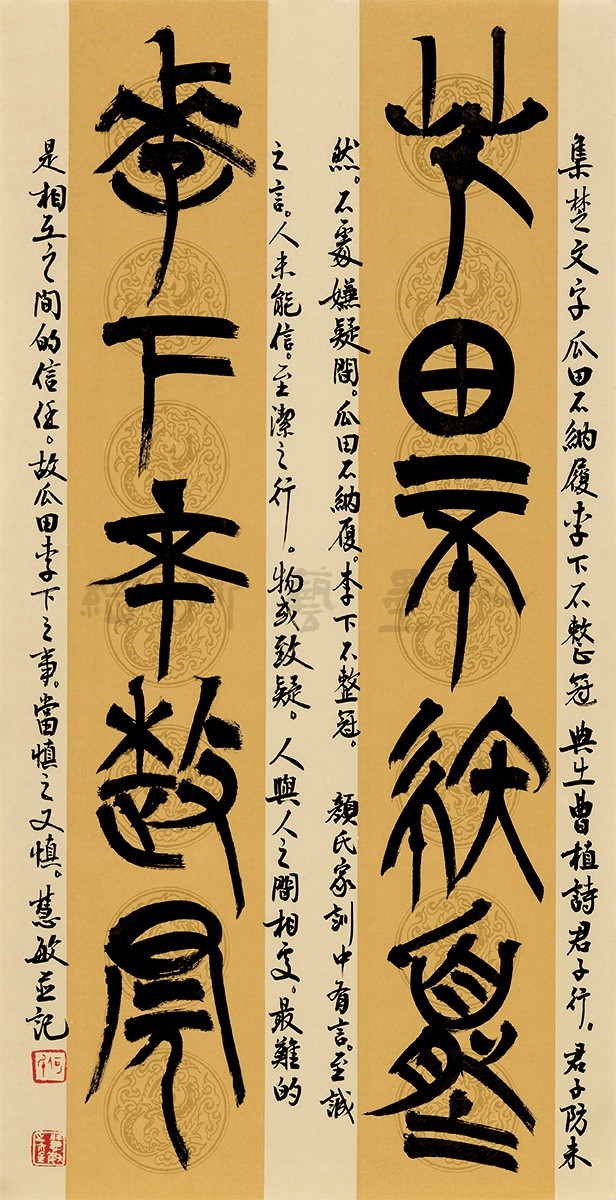 集楚文字瓜田不納履李下不整冠 典出曹植詩君子行。君子防未
瓜田不納履
然。不處嫌疑間。瓜田不納履。李下不整冠。 顏氏家訓中有言。至誠
之言。人未能信。至潔之行。物或致疑。人與人之間相交。最難的
李下不整冠
是相互之間的信任。故瓜田李下之事。當慎之又慎。慧敏並記